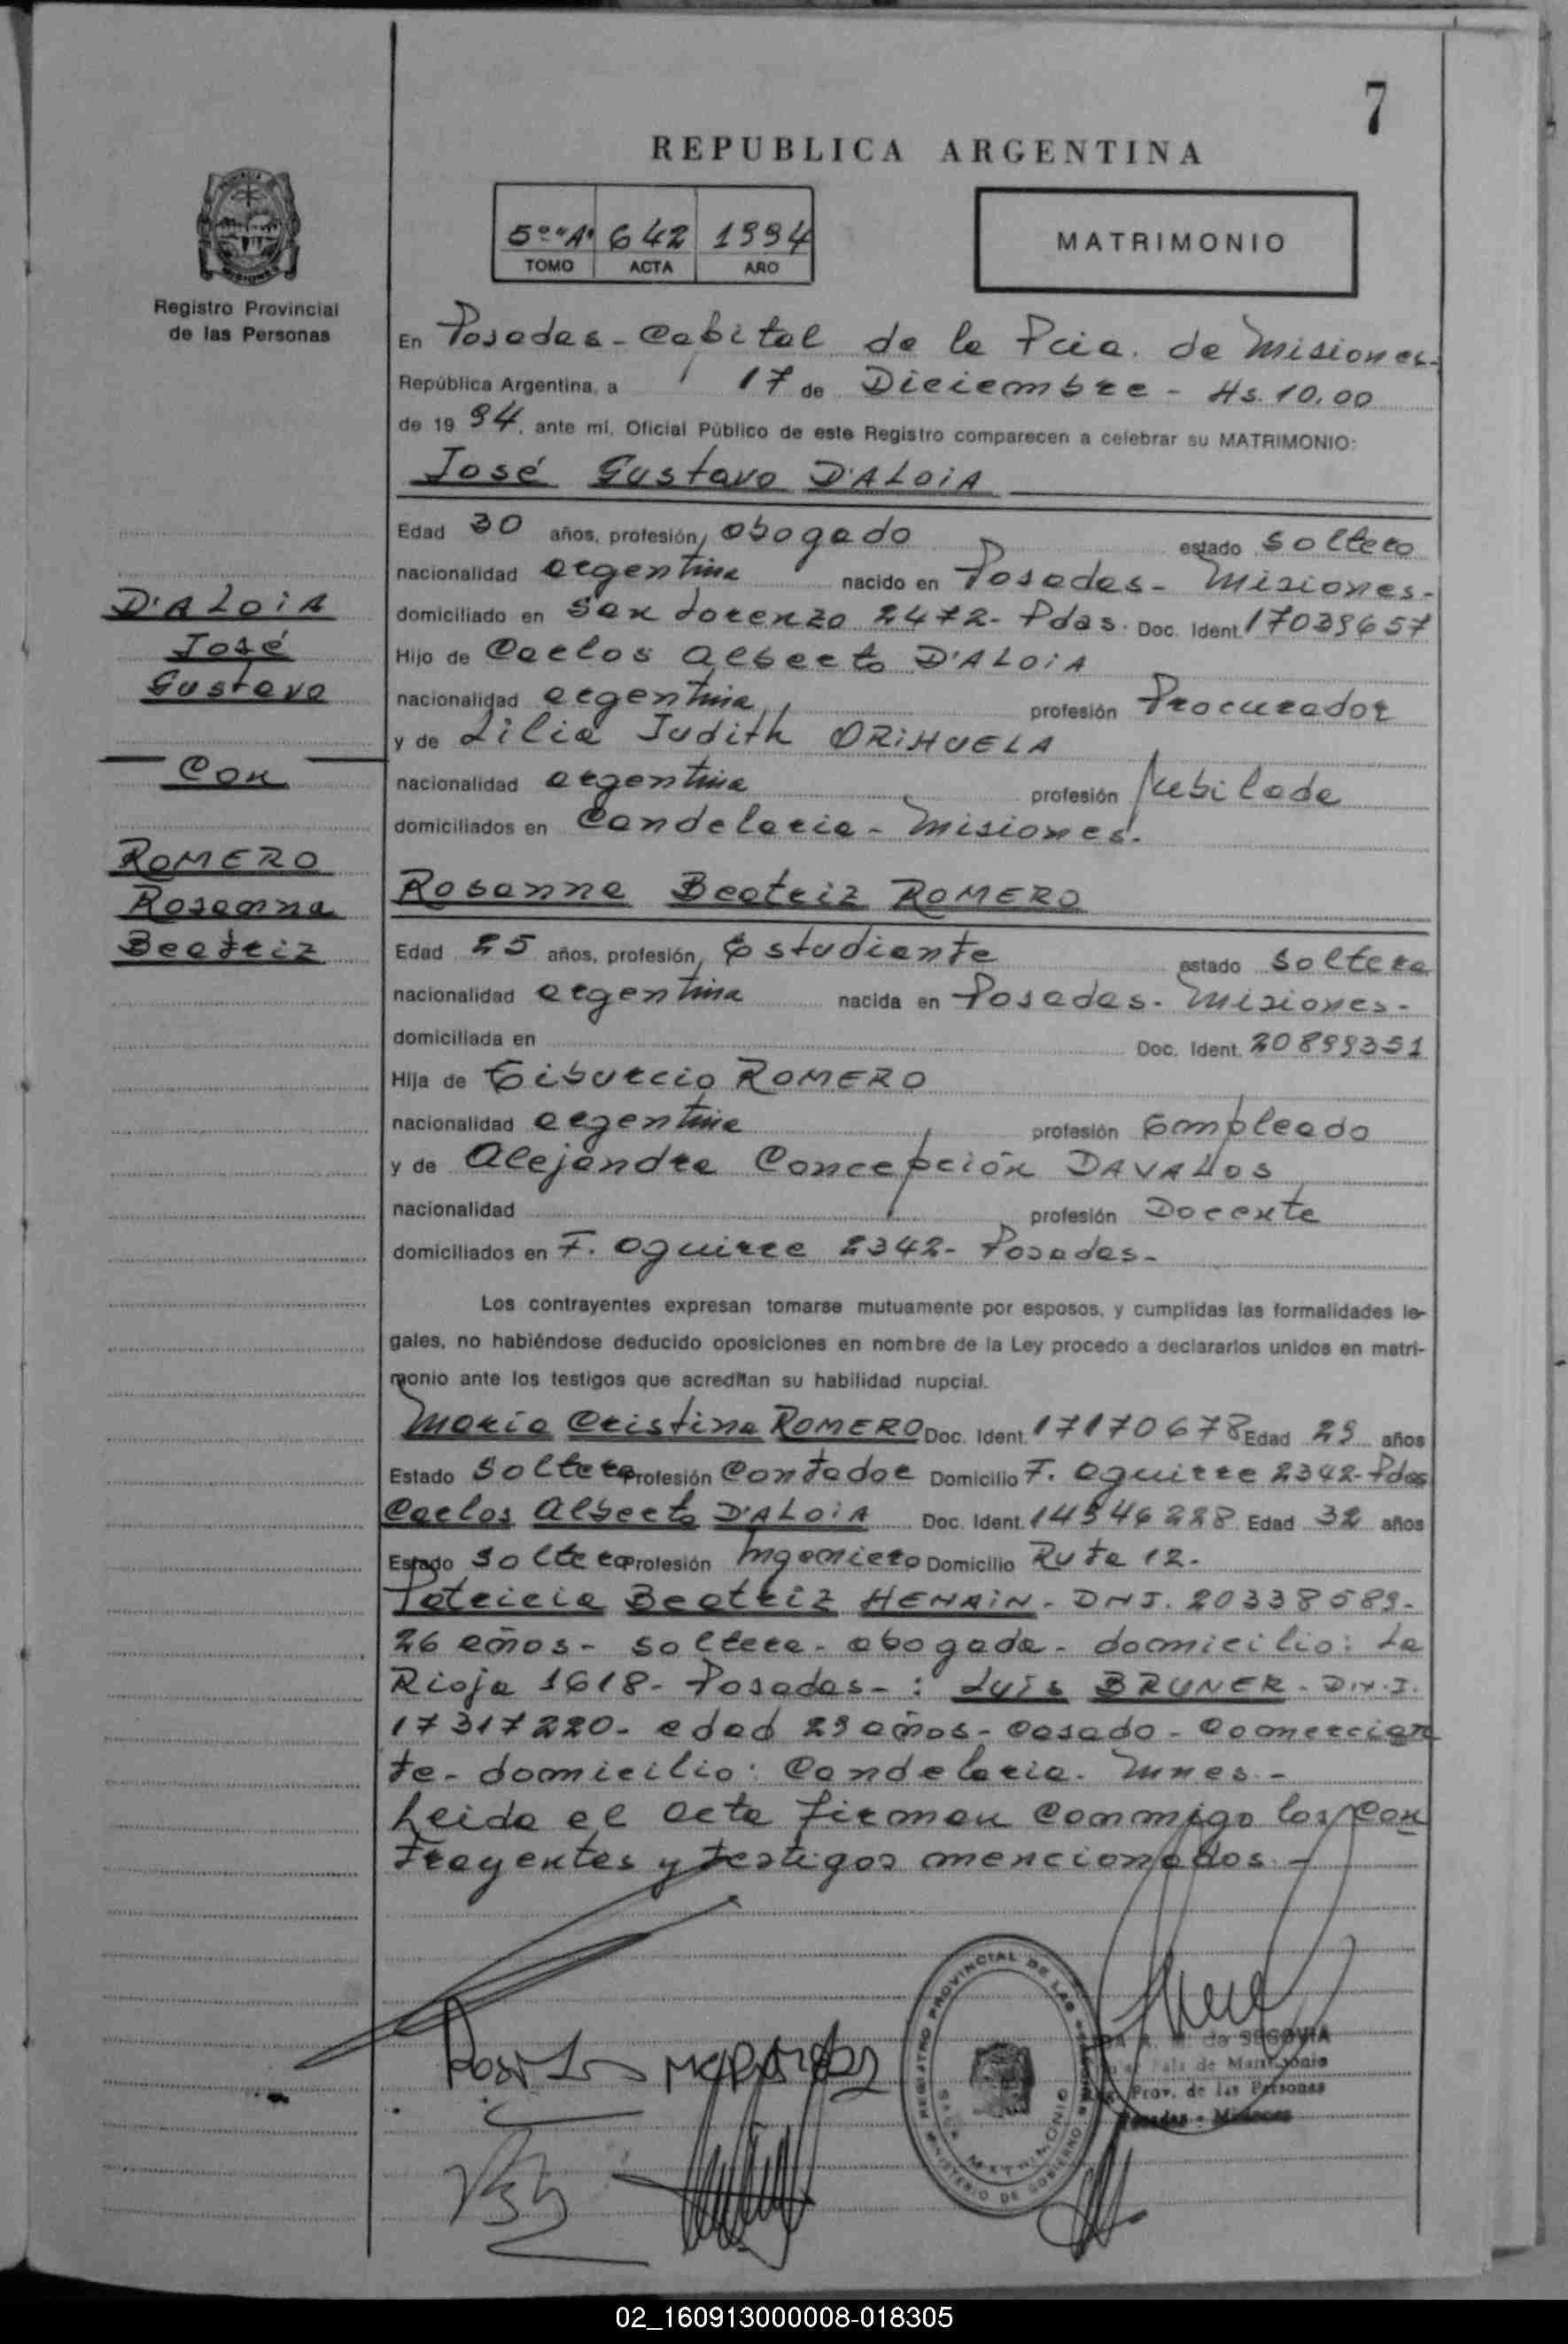 7
REPUBLICA ARGENTINA
5º "A" 642 1994
TOMO ACTA AÑO
MATRIMONIO
Registro Provincial
de las Personas
En Posadas - Capital de la Pcia. de Misiones -
República Argentina, a 17 de Diciembre - Hs. 10,00
de 19 94, ante mí, Oficial Público de este Registro comparecen a celebrar su MATRIMONIO:
José Gustavo D'ALOIA
Edad 30 años, profesión, abogado estado soltero
nacionalidad argentina nacido en Posadas - Misiones -
domiciliado en San Lorenzo 2472 - Pdas. Doc. Ident. 17039657
Hijo de Carlos Alberto D'ALOIA
nacionalidad argentina profesión Procurador
y de Lilia Judith ORIHUELA
nacionalidad argentina profesión Jubilada
domiciliados en Candelaria - Misiones -
D'ALOIA
José
Gustavo
Con
ROMERO
Rosanna
Beatriz
Rosanna Beatriz ROMERO
Edad 25 años, profesión, Estudiante estado soltera
nacionalidad argentina nacida en Posadas - Misiones -
domiciliada en Doc. Ident. 20899351
Hija de Tiburcio ROMERO
nacionalidad argentina profesión Empleado
y de Alejandra Concepción DAVALOS
nacionalidad profesión Docente
domiciliados en F. Aguirre 2342 - Posadas -
Los contrayentes expresan tomarse mutuamente por esposos, y cumplidas las formalidades le-
gales, no habiéndose deducido oposiciones en nombre de la Ley procedo a declararlos unidos en matri-
monio ante los testigos que acreditan su habilidad nupcial.
María Cristina ROMERO Doc. Ident. 17170678 Edad 29 años
Estado Soltera Profesión Contador Domicilio F. Aguirre 2342 - Pdas
Carlos Alberto D'ALOIA Doc. Ident. 14946228 Edad 32 años
Estado Soltero Profesión Ingeniero Domicilio Ruta 12 -
Patricia Beatriz HENAIN - DNI. 20338589 -
26 años - soltera - abogada - domicilio: La
Rioja 1618 - Posadas - : Luis BRUNER - D.N.I.
17317220 - edad 29 años - casado - Comercian
te - domicilio: Candelaria - Mnes -
Leida el acta firman conmigo los con
trayentes y testigos mencionados -
REGISTRO PROVINCIAL DE LAS PERSONAS
MINISTERIO DE GOBIERNO
MATRIMONIO
de SEGOVIA
Sala de Matrimonio
Prov. de las Personas
Posadas - Misiones
02_160913000008-018305